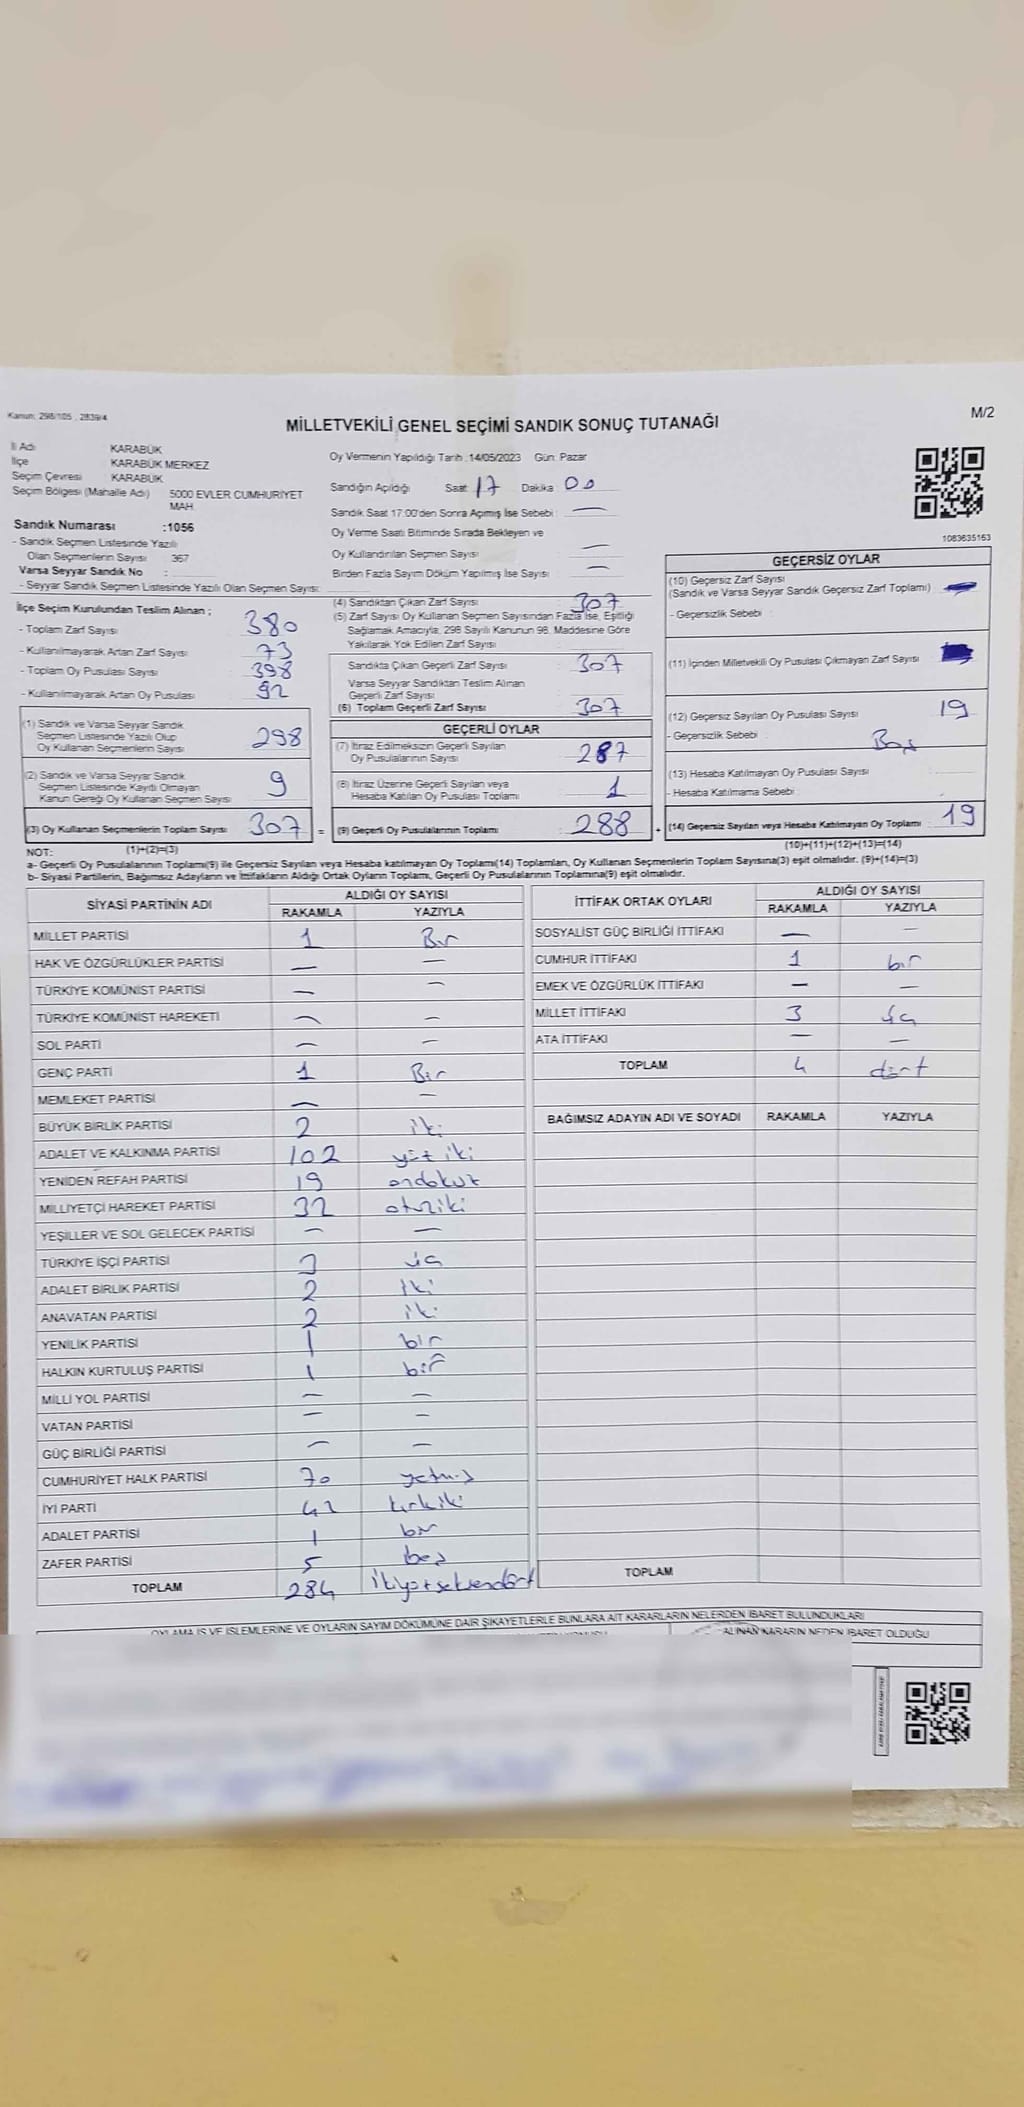 Kanun: 298/105 , 2839/4
M/2
MİLLETVEKİLİ GENEL SEÇİMİ SANDIK SONUÇ TUTANAĞI
İl Adı KARABÜK
İlçe KARABÜK MERKEZ
Seçim Çevresi KARABÜK
Seçim Bölgesi (Mahalle Adı) 5000 EVLER CUMHURİYET
MAH.
Sandık Numarası :1056
- Sandık Seçmen Listesinde Yazılı
Olan Seçmenlerin Sayısı 367
Varsa Seyyar Sandık No :
- Seyyar Sandık Seçmen Listesinde Yazılı Olan Seçmen Sayısı:
Oy Vermenin Yapıldığı Tarih :14/05/2023 Gün: Pazar
Sandığın Açıldığı Saat 17 Dakika 00
Sandık Saat 17:00'den Sonra Açımış İse Sebebi : —
Oy Verme Saati Bitiminde Sırada Bekleyen ve
Oy Kullandırılan Seçmen Sayısı —
Birden Fazla Sayım Döküm Yapılmış İse Sayısı —
1083635163
İlçe Seçim Kurulundan Teslim Alınan ;
- Toplam Zarf Sayısı 380
- Kullanılmayarak Artan Zarf Sayısı 73
- Toplam Oy Pusulası Sayısı 398
- Kullanılmayarak Artan Oy Pusulası 92
(1) Sandık ve Varsa Seyyar Sandık
Seçmen Listesinde Yazılı Olup
Oy Kullanan Seçmenlerin Sayısı 298
(2) Sandık ve Varsa Seyyar Sandık
Seçmen Listesinde Kayıtlı Olmayan
Kanun Gereği Oy Kullanan Seçmen Sayısı 9
(3) Oy Kullanan Seçmenlerin Toplam Sayısı 307 =
(1)+(2)=(3)
(4) Sandıktan Çıkan Zarf Sayısı 307
(5) Zarf Sayısı Oy Kullanan Seçmen Sayısından Fazla İse, Eşitliği
Sağlamak Amacıyla, 298 Sayılı Kanunun 98. Maddesine Göre
Yakılarak Yok Edilen Zarf Sayısı
Sandıkta Çıkan Geçerli Zarf Sayısı 307
Varsa Seyyar Sandıktan Teslim Alınan
Geçerli Zarf Sayısı
(6) Toplam Geçerli Zarf Sayısı 307
GEÇERLİ OYLAR
(7) İtiraz Edilmeksizin Geçerli Sayılan
Oy Pusulalarının Sayısı 287
(8) İtiraz Üzerine Geçerli Sayılan veya
Hesaba Katılan Oy Pusulası Toplamı 1
(9) Geçerli Oy Pusulalarının Toplamı : 288 +
GEÇERSİZ OYLAR
(10) Geçersiz Zarf Sayısı
(Sandık ve Varsa Seyyar Sandık Geçersiz Zarf Toplamı)
- Geçersizlik Sebebi :
(11) İçinden Milletvekili Oy Pusulası Çıkmayan Zarf Sayısı
(12) Geçersiz Sayılan Oy Pusulası Sayısı 19
- Geçersizlik Sebebi : Boş
(13) Hesaba Katılmayan Oy Pusulası Sayısı
- Hesaba Katılmama Sebebi :
(14) Geçersiz Sayılan veya Hesaba Katılmayan Oy Toplamı 19
(10)+(11)+(12)+(13)=(14)
NOT:
a- Geçerli Oy Pusulalarının Toplamı(9) ile Geçersiz Sayılan veya Hesaba katılmayan Oy Toplamı(14) Toplamları, Oy Kullanan Seçmenlerin Toplam Sayısına(3) eşit olmalıdır. (9)+(14)=(3)
b- Siyasi Partilerin, Bağımsız Adayların ve İttifakların Aldığı Ortak Oyların Toplamı, Geçerli Oy Pusulalarının Toplamına(9) eşit olmalıdır.
SİYASİ PARTİNİN ADI ALDIĞI OY SAYISI
RAKAMLA YAZIYLA
MİLLET PARTİSİ 1 Bir
HAK VE ÖZGÜRLÜKLER PARTİSİ — —
TÜRKİYE KOMÜNİST PARTİSİ — —
TÜRKİYE KOMÜNİST HAREKETİ — —
SOL PARTİ — —
GENÇ PARTİ 1 Bir
MEMLEKET PARTİSİ — —
BÜYÜK BİRLİK PARTİSİ 2 iki
ADALET VE KALKINMA PARTİSİ 102 yüz iki
YENİDEN REFAH PARTİSİ 19 ondokuz
MİLLİYETÇİ HAREKET PARTİSİ 32 otuziki
YEŞİLLER VE SOL GELECEK PARTİSİ — —
TÜRKİYE İŞÇİ PARTİSİ 3 üç
ADALET BİRLİK PARTİSİ 2 iki
ANAVATAN PARTİSİ 2 iki
YENİLİK PARTİSİ 1 bir
HALKIN KURTULUŞ PARTİSİ 1 bir
MİLLİ YOL PARTİSİ — —
VATAN PARTİSİ — —
GÜÇ BİRLİĞİ PARTİSİ — —
CUMHURİYET HALK PARTİSİ 70 yetmiş
İYİ PARTİ 42 kırkiki
ADALET PARTİSİ 1 bir
ZAFER PARTİSİ 5 beş
TOPLAM 284 ikiyüzseksendört
İTTİFAK ORTAK OYLARI ALDIĞI OY SAYISI
RAKAMLA YAZIYLA
SOSYALİST GÜÇ BİRLİĞİ İTTİFAKI — —
CUMHUR İTTİFAKI 1 bir
EMEK VE ÖZGÜRLÜK İTTİFAKI — —
MİLLET İTTİFAKI 3 üç
ATA İTTİFAKI — —
TOPLAM 4 dört
BAĞIMSIZ ADAYIN ADI VE SOYADI RAKAMLA YAZIYLA
TOPLAM
OYLAMA İŞ VE İŞLEMLERİNE VE OYLARIN SAYIM DÖKÜMÜNE DAİR ŞİKAYETLERLE BUNLARA AİT KARARLARIN NELERDEN İBARET BULUNDUKLARI
ALINAN KARARIN NEDEN İBARET OLDUĞU